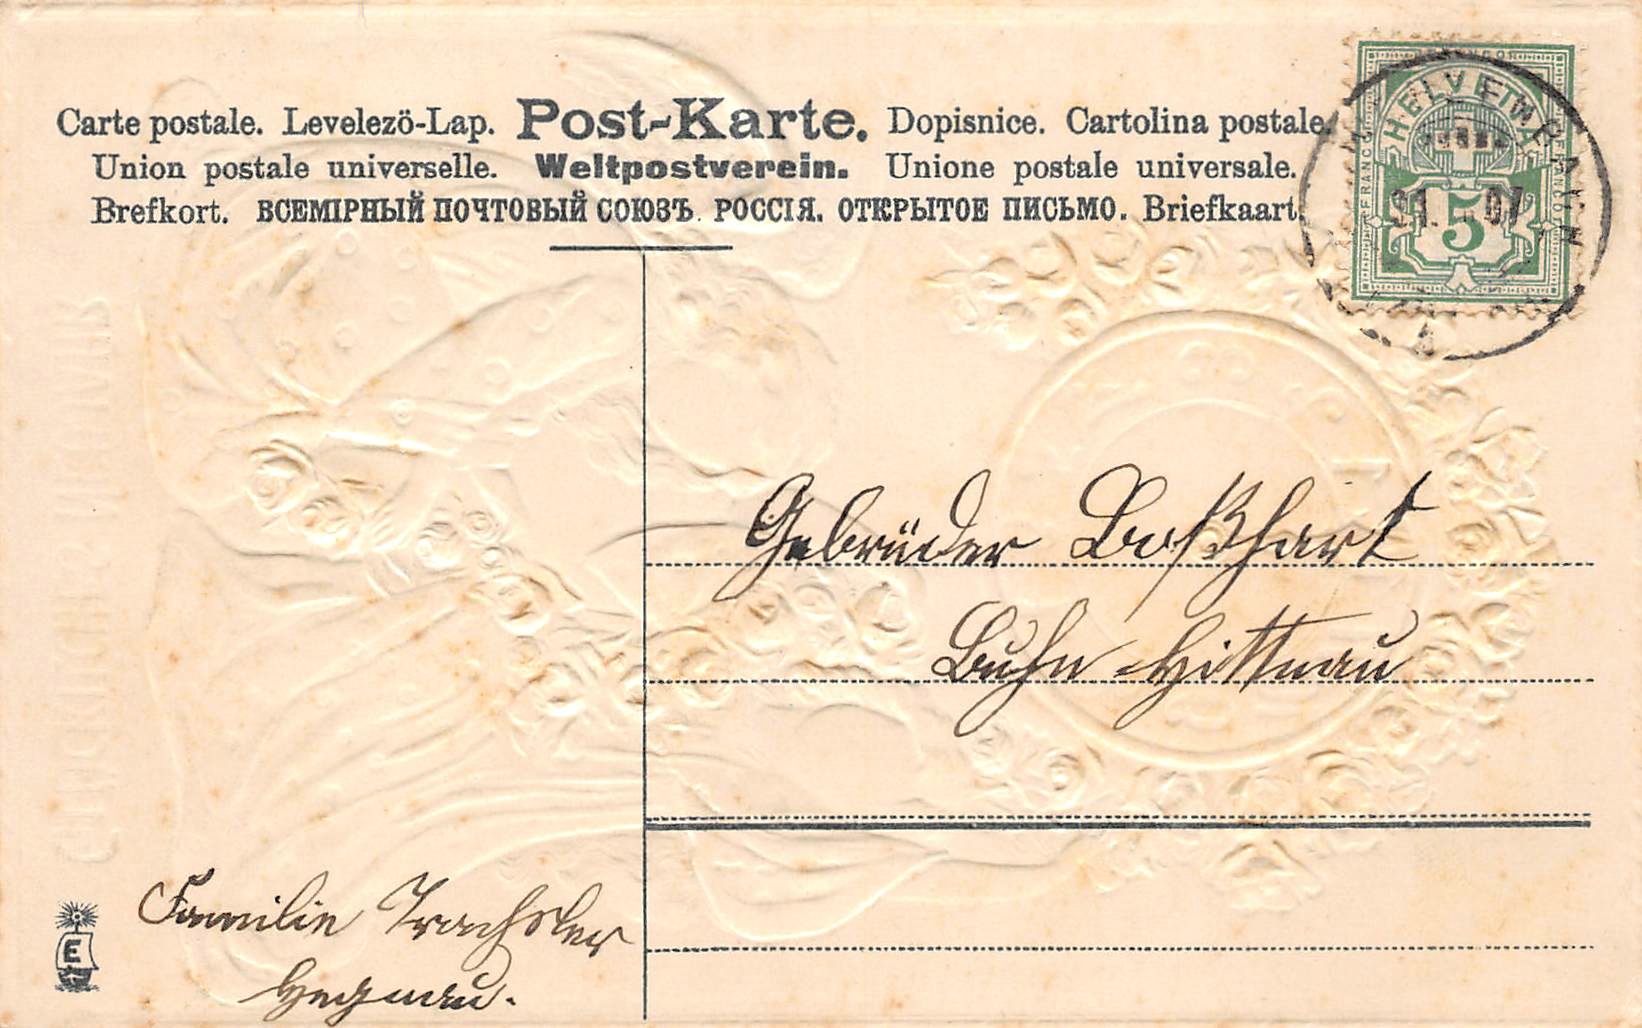 Carte postale. Levelező-Lap. Post-Karte. Dopisnice. Cartolina postale.
Union postale universelle. Weltpostverein. Unione postale universale.
Brefkort. ВСЕМІРНЫЙ ПОЧТОВЫЙ СОЮЗЪ. РОССІЯ. ОТКРЫТОЕ ПИСЬМО. Briefkaart.
FRANCO
HELVETIA
5
07
Gebrüder Boßhart
Hittnau
Familie Trachsler
Hegnau.
E